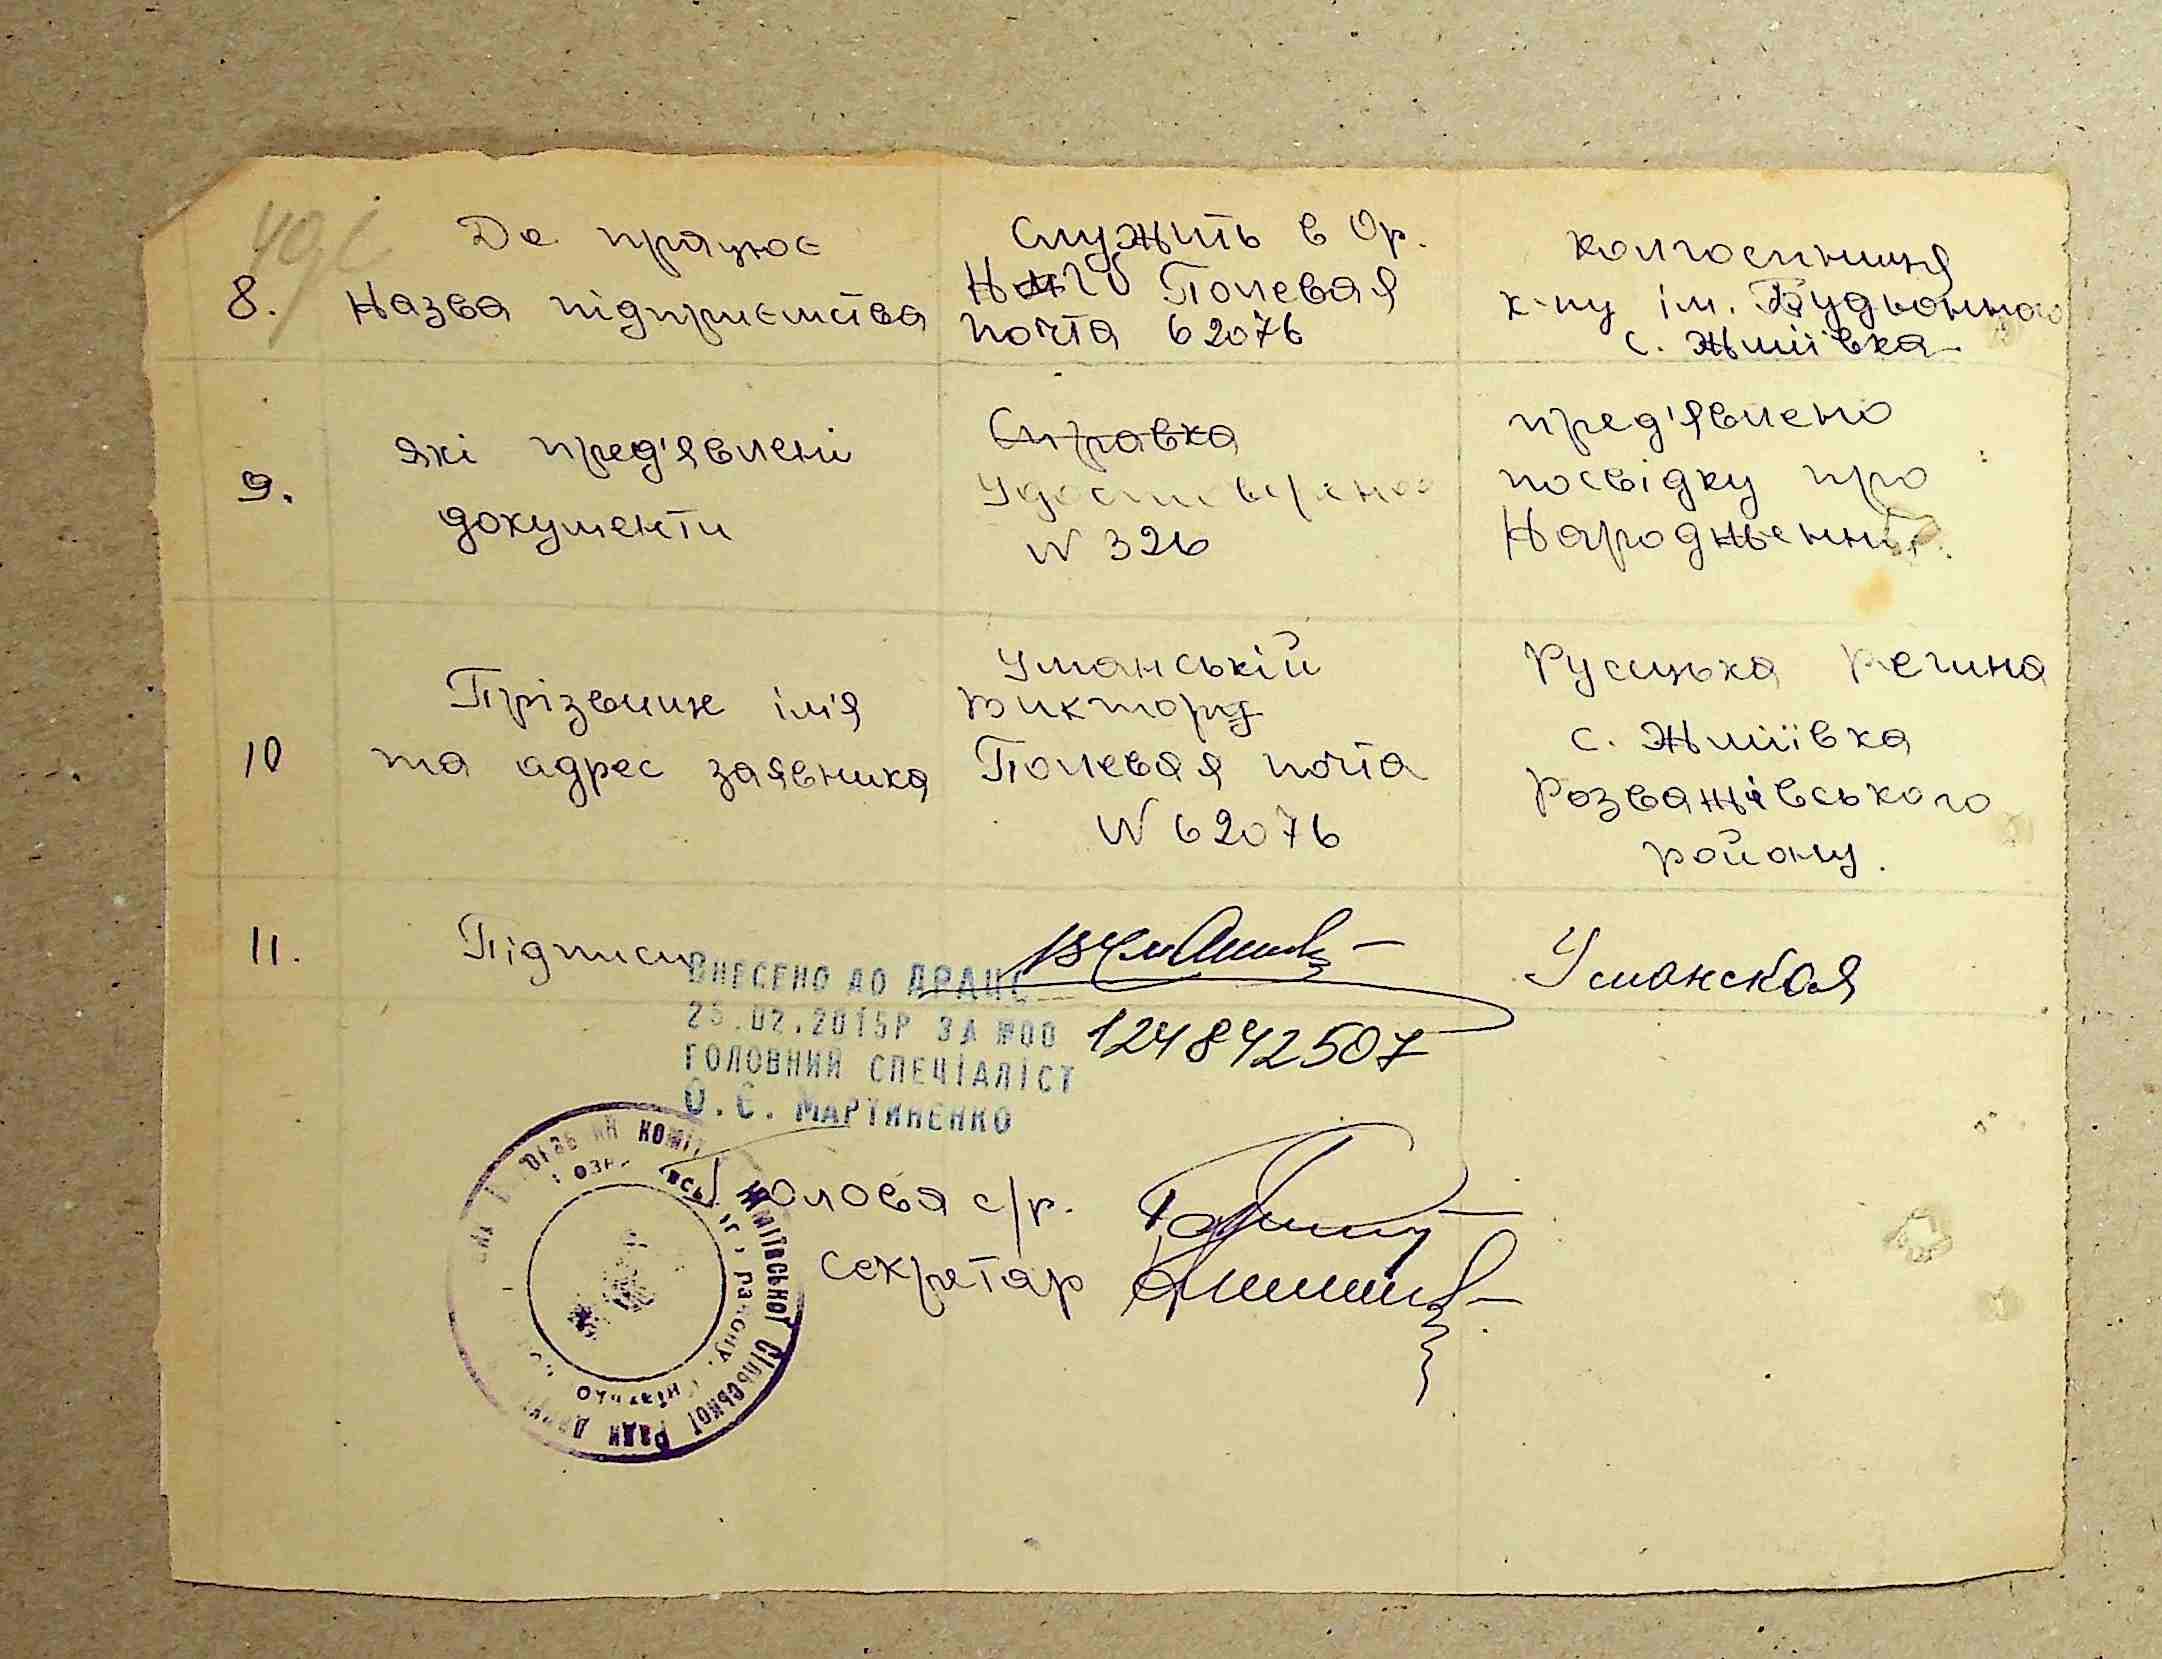 8.
Де працює
Назва підприємства
Служить в Ор.
Полевая
почта 62076
колгоспниця
к-пу ім. Будьонного
с. Жміївка
9.
які пред'явлені
документи
Справка
Удостоверение
N 326
пред'явлено
посвідку про
Народження.
10
Прізвище ім'я
та адрес заявника
Уманській
Виктор
Полевая почта
N 62076
Русицька Регина
с. Жміївка
Розважівського
району.
11.
Підписи
Уманская
ВНЕСЕНО ДО ДРАЦС
25.02.2015Р ЗА №00
124842507
ГОЛОВНИЙ СПЕЦІАЛІСТ
О.Є. МАРТИНЕНКО
Голова с/р.
секретар
Жміївської Сільської Ради